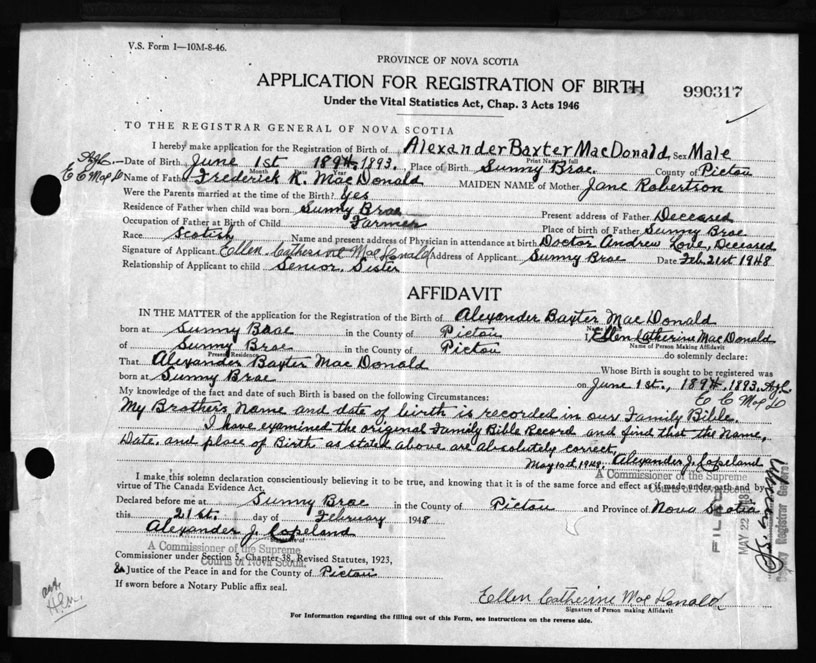 V.S. Form 1—10M-8-46.
PROVINCE OF NOVA SCOTIA
APPLICATION FOR REGISTRATION OF BIRTH
990317
Under the Vital Statistics Act, Chap. 3 Acts 1946
TO THE REGISTRAR GENERAL OF NOVA SCOTIA
I hereby make application for the Registration of Birth of Alexander Baxter MacDonald, Sex Male
Print Name in full
Date of Birth June 1st 1894. 1893. Place of Birth Sunny Brae. County of Pictou
Month Date Year
Name of Father Frederick R. MacDonald MAIDEN NAME of Mother Jane Robertson
Were the Parents married at the time of the Birth? Yes
Residence of Father when child was born Sunny Brae Present address of Father Deceased
Occupation of Father at Birth of Child Farmer Place of birth of Father Sunny Brae
Race Scotish Name and present address of Physician in attendance at birth Doctor Andrew Love, Deceased
Signature of Applicant Ellen Catherine MacDonald Address of Applicant Sunny Brae Date Feb. 21st 1948
Relationship of Applicant to child Senior Sister
AFFIDAVIT
IN THE MATTER of the application for the Registration of Birth of Alexander Baxter MacDonald
born at Sunny Brae in the County of Pictou I, Ellen Catherine MacDonald
Name of Person Making Affidavit
of Sunny Brae in the County of Pictou do solemnly declare:
Present Residence
That Alexander Baxter MacDonald Whose Birth is sought to be registered was
born at Sunny Brae on June 1st., 1894. 1893. AJC
E C McD
My knowledge of the fact and date of such Birth is based on the following Circumstances:
My Brothers Name and date of birth is recorded in our Family Bible.
I have examined the original Family Bible Record and find that the Name,
Date, and place of Birth as stated above are absolutely correct,
May 10th, 1948. Alexander J. Copeland
A Commissioner of the Supreme
Courts of Nova Scotia
I make this solemn declaration conscientiously believing it to be true, and knowing that it is of the same force and effect as if made under oath and by
virtue of The Canada Evidence Act.
Declared before me at Sunny Brae in the County of Pictou and Province of Nova Scotia
this 21st. day of February 1948
Alexander J. Copeland
A Commissioner of the Supreme
Courts of Nova Scotia.
Commissioner under Section 5, Chapter 38, Revised Statutes, 1923,
Justice of the Peace in and for the County of Pictou
If sworn before a Notary Public affix seal.
Ellen Catherine MacDonald
Signature of Person making Affidavit
For Information regarding the filling out of this Form, see instructions on the reverse side.
FILED
MAY 22 1948
Deputy Registrar General